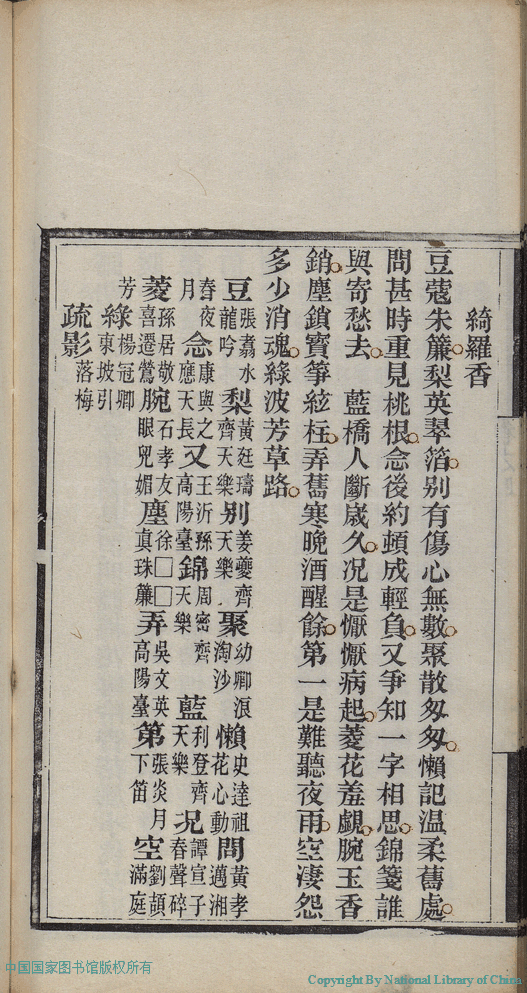 綺羅香
豆蔻朱簾梨英翠箔。别有傷心無數。聚散匆匆。懶記温柔舊處。
問甚時重見桃根。念後約頓成輕負。又爭知一字相思。錦箋誰
與寄愁去。　藍橋人斷歲久。况是懨懨病起。菱花羞覷。腕玉香
銷。塵鎖寶箏絃柱。弄舊寒晚酒醒餘。第一是難聽夜雨。空淒怨
多少消魂。綠波芳草路。
豆張翥水龍吟　梨黃廷璹齊天樂　别姜夔齊天樂　聚幼卿浪淘沙　懶史達祖花心動　問黃孝邁湘
春夜月　念康與之應天長　又王沂孫高陽臺　錦周密齊天樂　藍利登齊天樂　况譚宣子春聲碎
菱孫居敬喜遷鶯　腕石孝友眼兒媚　塵徐□□真珠簾　弄吳文英高陽臺　第張炎月下笛　空劉頡滿庭
芳　綠楊冠卿東坡引
疏影落梅
中国国家图书馆版权所有
Copyright By National Library of China